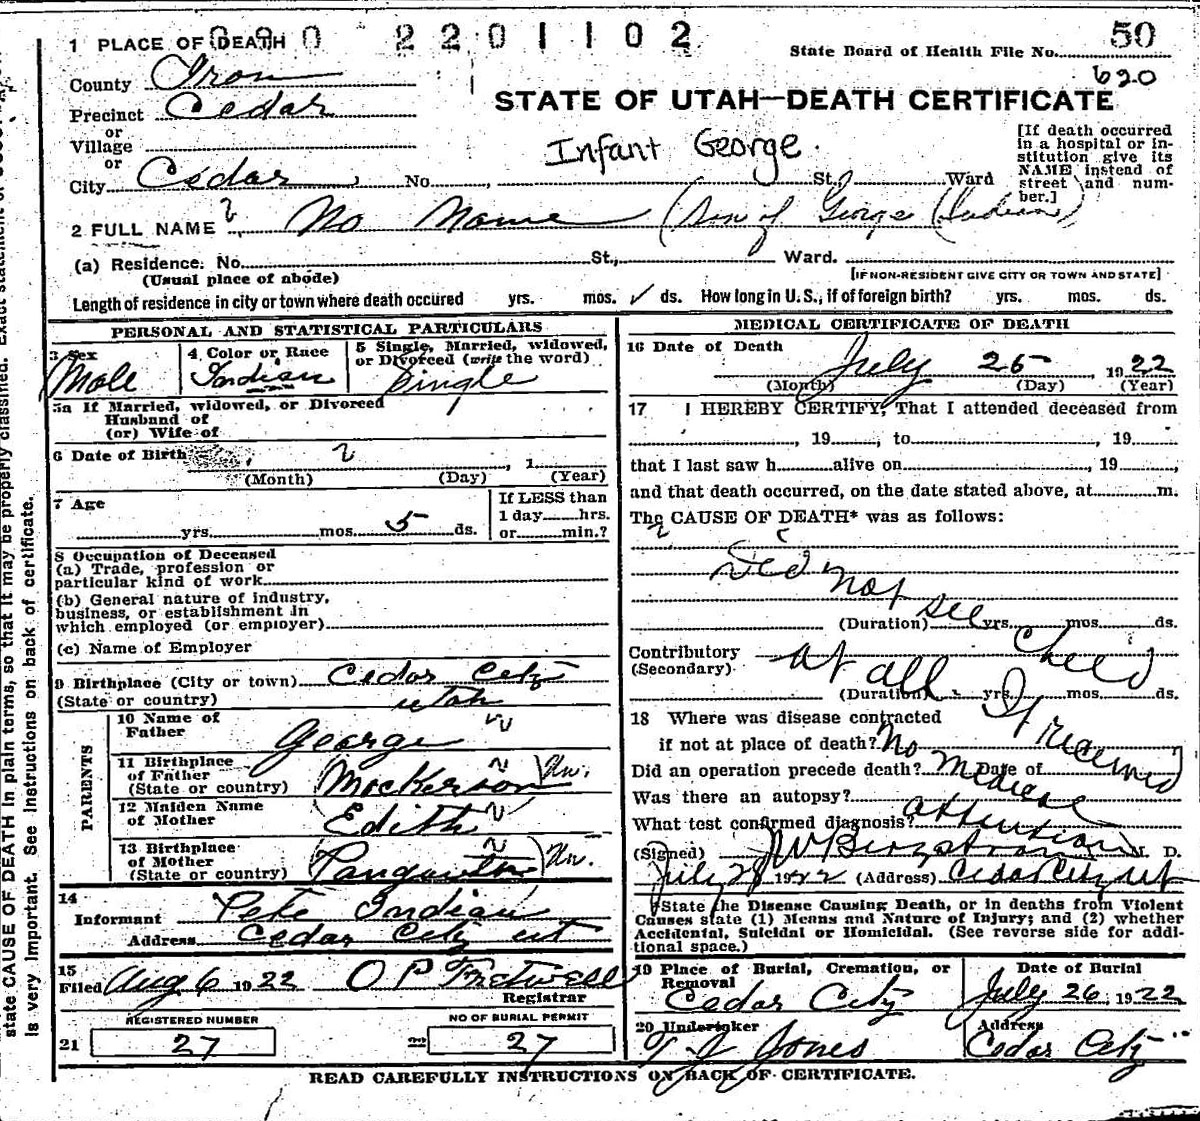 2201102
1 PLACE OF DEATH
State Board of Health File No. 50
620
County Iron
STATE OF UTAH—DEATH CERTIFICATE
Precinct Cedar
or
Village
or
City Cedar, No. , St., Ward
Infant George.
[If death occurred
in a hospital or in-
stitution give its
NAME instead of
street and num-
ber.]
2 FULL NAME No Name (Son of George (Indian)
(a) Residence. No. St., Ward.
(Usual place of abode)
[IF NON-RESIDENT GIVE CITY OR TOWN AND STATE]
Length of residence in city or town where death occured yrs. mos. ✓ ds. How long in U. S., if of foreign birth? yrs. mos. ds.
PERSONAL AND STATISTICAL PARTICULARS
3 Sex
Male
4 Color or Race
Indian
5 Single, Married, widowed,
or Divorced (write the word)
Single
5a If Married, widowed, or Divorced
Husband of
(or) Wife of
6 Date of Birth , 1
(Month) (Day) (Year)
7 Age
yrs. mos. 5 ds.
If LESS than
1 day hrs.
or min.?
8 Occupation of Deceased
(a) Trade, profession or
particular kind of work
(b) General nature of industry,
business, or establishment in
which employed (or employer)
(c) Name of Employer
9 Birthplace (City or town) Cedar City
(State or country) Utah
PARENTS
10 Name of
Father George
11 Birthplace
of Father
(State or country) Un.
12 Maiden Name
of Mother Edith
13 Birthplace
of Mother
(State or country) Un.
14
Informant Pete Indian
Address Cedar City ut
15
Filed Aug 6 1922 O P Fretwell
Registrar
REGISTERED NUMBER
21 27
NO OF BURIAL PERMIT
22 27
MEDICAL CERTIFICATE OF DEATH
16 Date of Death
July 25 1922
(Month) (Day) (Year)
17 I HEREBY CERTIFY, That I attended deceased from
, 19 , to , 19
that I last saw h alive on , 19 ,
and that death occurred, on the date stated above, at m.
The CAUSE OF DEATH* was as follows:
Did not see child
(Duration) yrs. mos. ds.
Contributory at all
(Secondary)
(Duration) yrs. mos. ds.
It received
18 Where was disease contracted
if not at place of death? No
Did an operation precede death? medical Date of
Was there an autopsy?
What test confirmed diagnosis? attention
(Signed) M. D.
July 28 1922 (Address) Cedar City ut
*State the Disease Causing Death, or in deaths from Violent
Causes state (1) Means and Nature of Injury; and (2) whether
Accidental, Suicidal or Homicidal. (See reverse side for addi-
tional space.)
19 Place of Burial, Cremation, or
Removal
Cedar City
Date of Burial
July 26, 1922
20 Undertaker
Jones
Address
Cedar City
READ CAREFULLY INSTRUCTIONS ON BACK OF CERTIFICATE.
state CAUSE OF DEATH in plain terms, so that it may be properly classified. Exact statement of
is very important. See instructions on back of certificate.